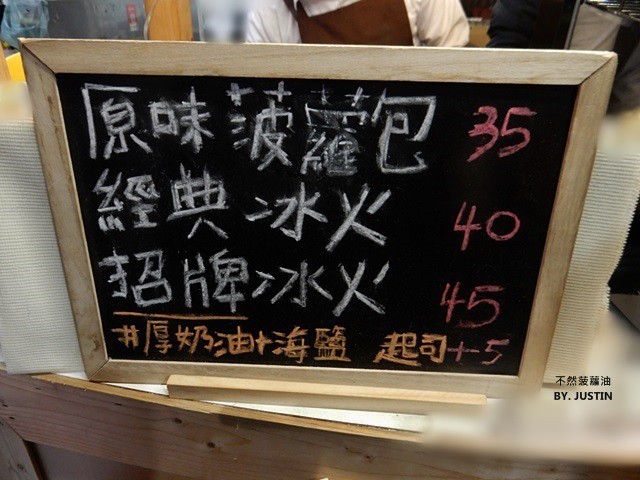 原味菠蘿包 35
經典冰火 40
招牌冰火 45
#厚奶油+海鹽 起司+5
不然菠蘿油
BY. JUSTIN